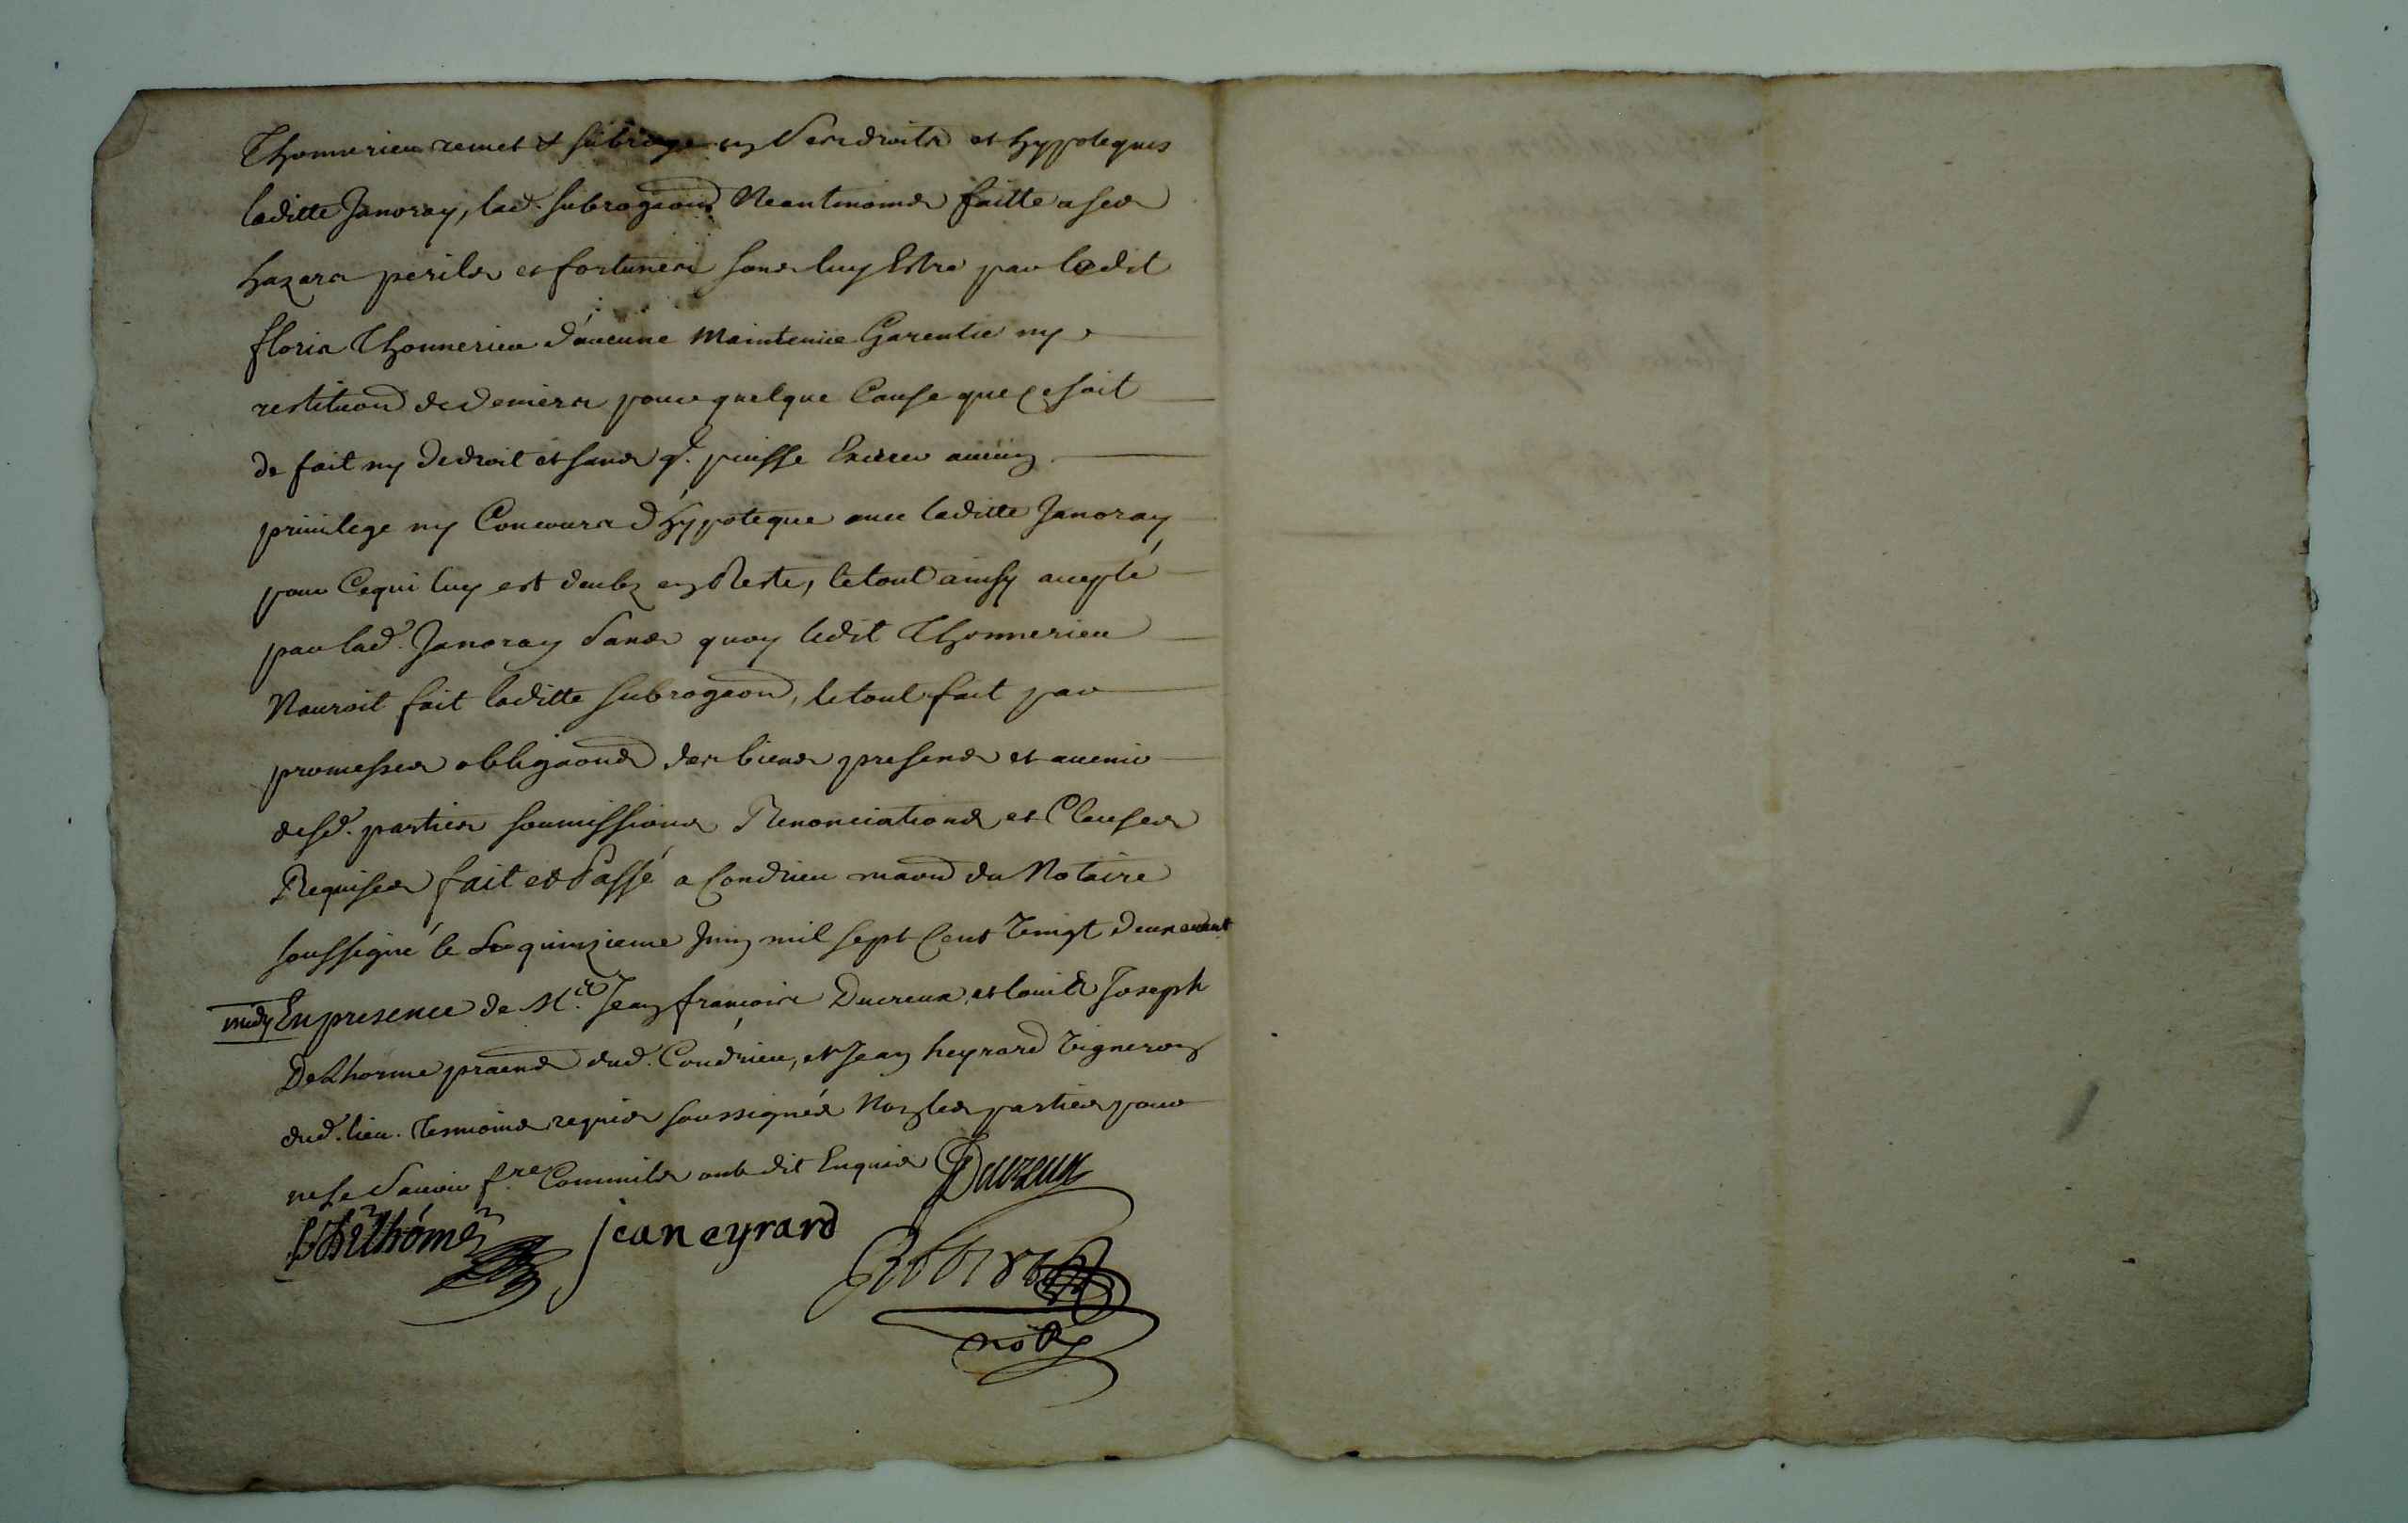 Thonnerieu remet & subroge en ses droits et hyppoteques
laditte Janoray, lad. subrogaōn Neantmoins faitte a ses
hazars perils et fortunes sans luy Estre par ledit
floris Thonnerieu d'aucune Maintenüe Garentie ny
restituōn de deniers pour quelque Cause que ce soit
de fait ny de droit et sans q'. puisse Exercer aucun
priuilege ny Concours d'hÿpoteque auec laditte Janoray
pour Cequi luy est deub en Reste, le tout ainsy accepté
par lad. Janoray Sans quoy ledit Thonnerieu
Nauroit fait laditte subrogaōn, le tout fait par
promesses obligaōns des biens presens et auenir
desd. parties soumissions Renonciations et Clauses
Requises fait et Passé a Condrieu maōn du Notaire
soussigné le quinzieme Juin mil sept Cent vingt deux auant
midy En presence de Me. Jean françois Ducreux, et louis Joseph
Delhorme praēns dud. Condrieu, et Jean heyrard vigneron
dud. lieu. tesmoins requis soussignés Non les parties pour
ne le Sauoir fre. Comme ils ont dit Enquis Ducreux
Delhome jean eyrard
notr̃e